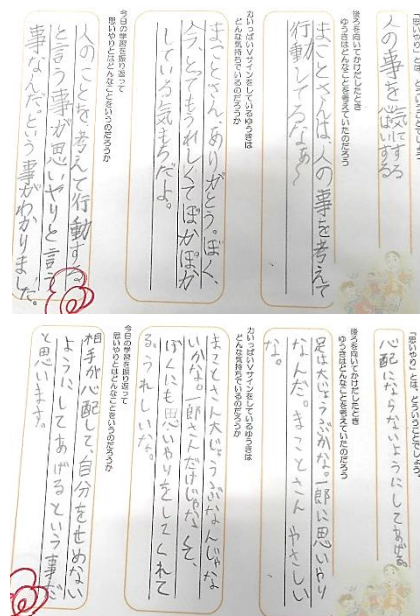 「思いやり」とは、どういうことでしょう。
人の事を気にする
心ぱいする
後ろを向いてかけだしたとき
ゆうきはどんなことを考えていたのだろう
まことさんは、人の事を考えて
行動してるなぁ〜
力いっぱいVサインをしているゆうきは
どんな気持ちでいるのだろうか
まことさん、ありがとう。ぼく、
今とってもうれしくてぽかぽか
している気もちだよ。
今日の学習を振り返って
思いやりとはどんなことをいうのだろうか
人のことを考えて行動する
と言う事が思いやりと言う
事なんだ。という事がわかりました。
「思いやり」とは、どういうことでしょう。
心配にならないようにしてあげる。
後ろを向いてかけだしたとき
ゆうきはどんなことを考えていたのだろう
足は大じょうぶかな。一郎に思いやり
なんだ。まことさん やさしい
な。
力いっぱいVサインをしているゆうきは
どんな気持ちでいるのだろうか
まことさん大じょうぶなんじゃな
いかな。一郎さんだけじゃなくて、
ぼくにも思いやりをしてくれて
る。うれしいな。
今日の学習を振り返って
思いやりとはどんなことをいうのだろうか
相手が心配して、自分をせめない
ようにしてあげるという事だ
と思います。